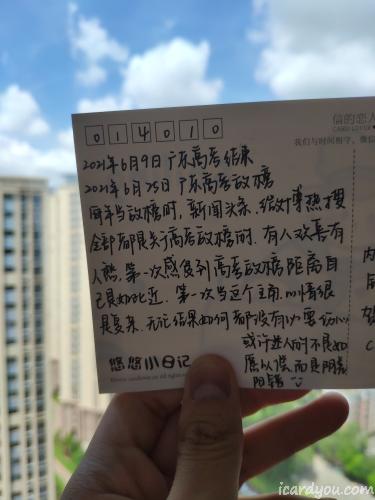 014010
信的恋人
我们与时间相守,
2021年6月9日广东高考结束
2021年6月25日广东高考放榜
同年当放榜时,新闻头条、微博热搜
全部都是关于高考放榜的.有人欢喜有
人愁.第一次感受到高考放榜距离自
己是如此近.第一次当这个主角.心情很
是复杂.无论结果如何都没有必要伤心
或许进入的不是如
愿以偿.而是阴差
阳错
悠悠小日记
icardyou.com